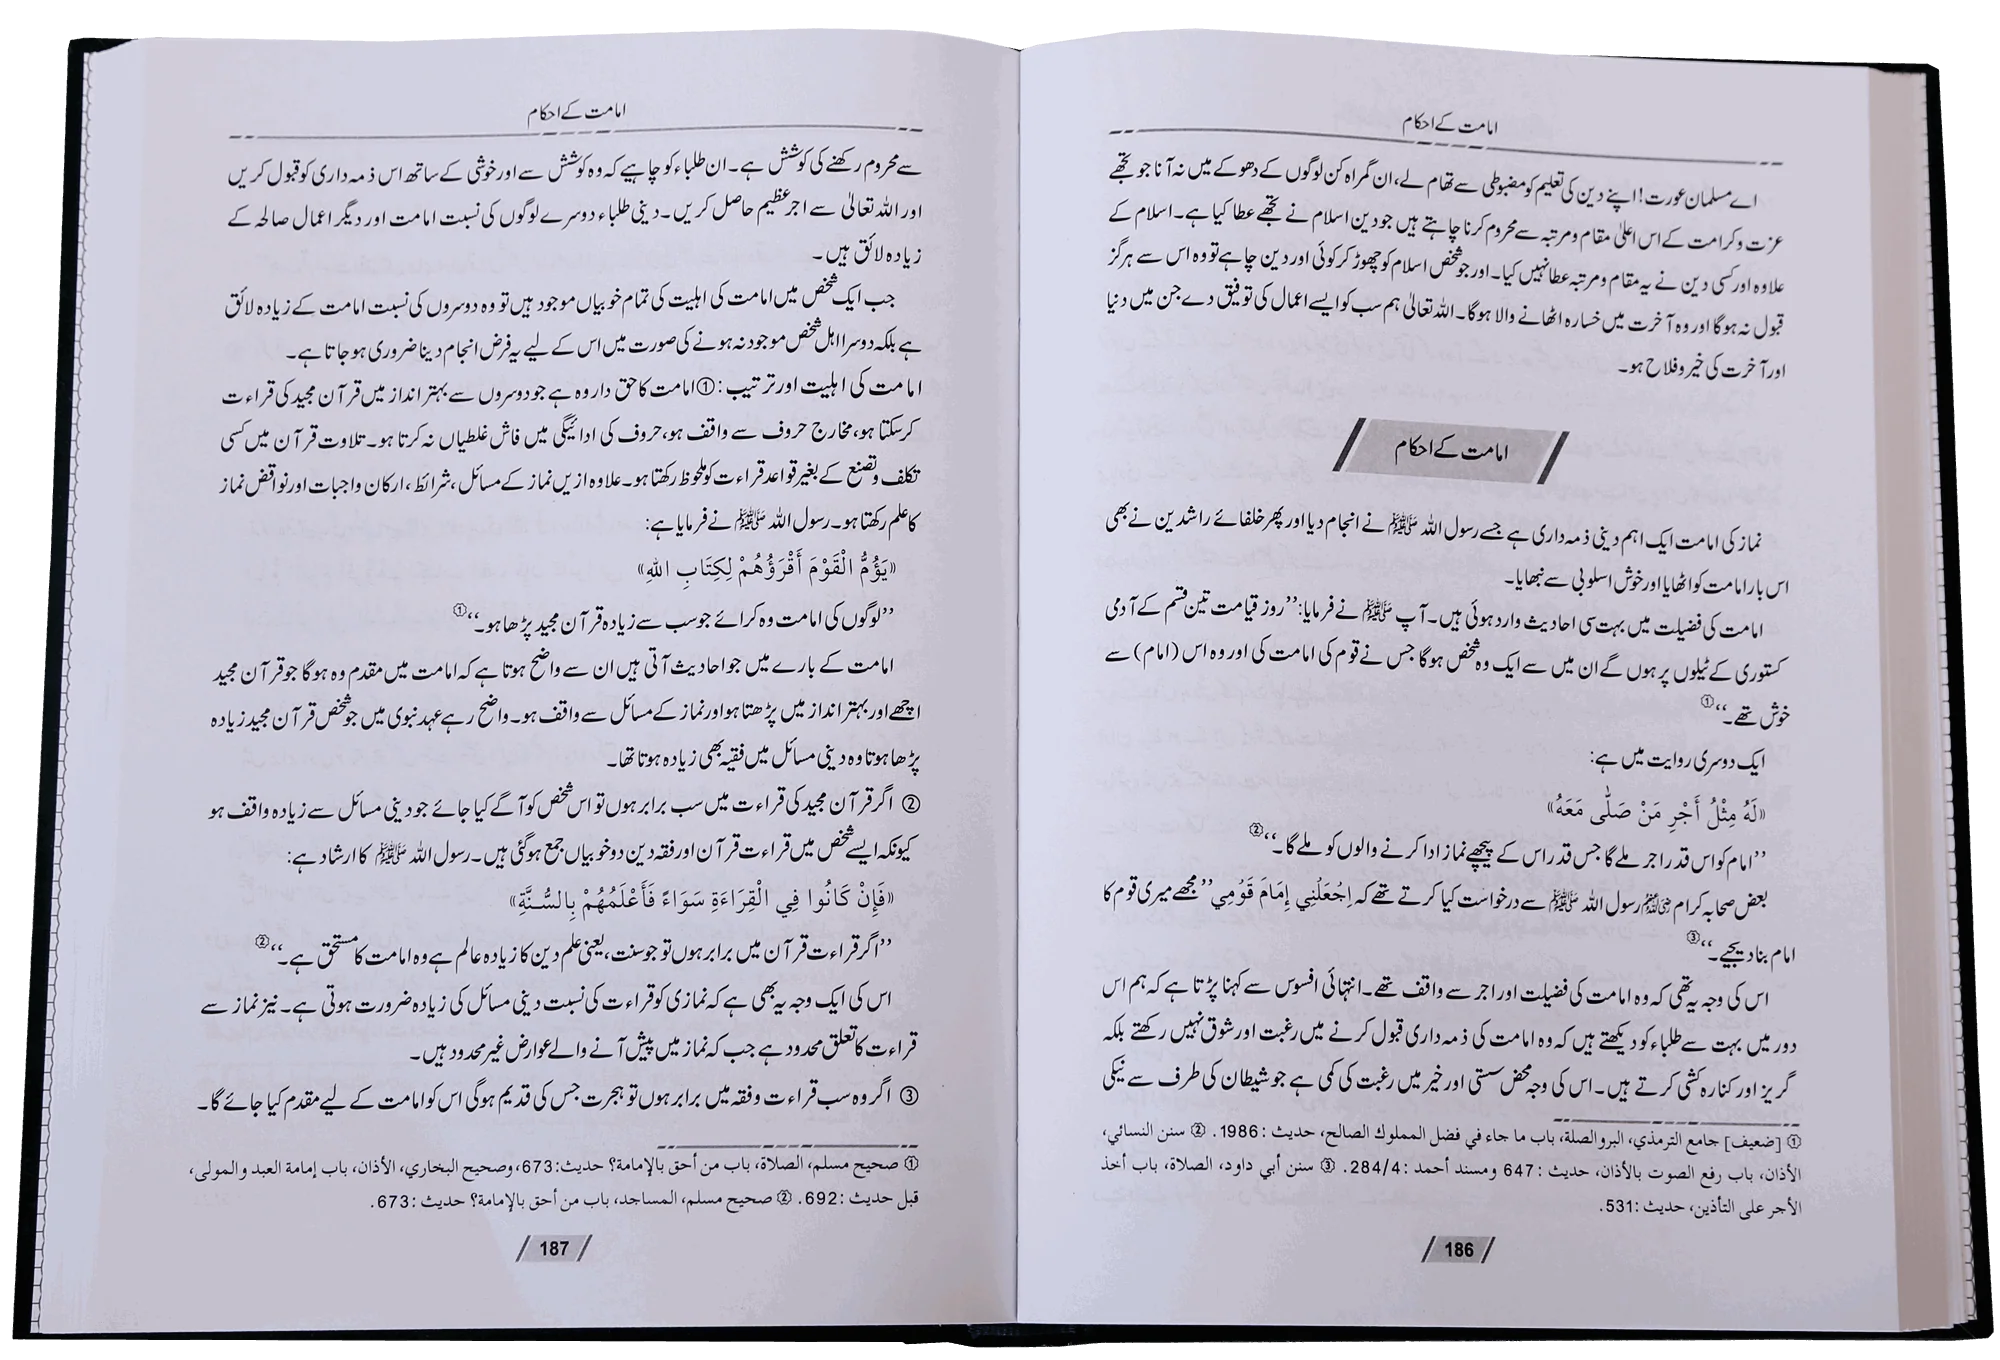 امامت کے احکام
اے مسلمان عورت! اپنے دین کی تعلیم کو مضبوطی سے تھام لے، ان گمراہ کن لوگوں کے دھوکے میں نہ آنا جو تجھے
عزت و کرامت کے اس اعلیٰ مقام و مرتبہ سے محروم کرنا چاہتے ہیں جو دین اسلام نے تجھے عطا کیا ہے۔ اسلام کے
علاوہ اور کسی دین نے یہ مقام و مرتبہ عطا نہیں کیا۔ اور جو شخص اسلام کو چھوڑ کر کوئی اور دین چاہے تو وہ اس سے ہرگز
قبول نہ ہوگا اور وہ آخرت میں خسارہ اٹھانے والا ہوگا۔ اللہ تعالیٰ ہم سب کو ایسے اعمال کی توفیق دے جن میں دنیا
اور آخرت کی خیر و فلاح ہو۔
امامت کے احکام
نماز کی امامت ایک اہم دینی ذمہ داری ہے جسے رسول اللہ ﷺ نے انجام دیا اور پھر خلفائے راشدین نے بھی
اس بار امامت کو اٹھایا اور خوش اسلوبی سے نبھایا۔
امامت کی فضیلت میں بہت سی احادیث وارد ہوئی ہیں۔ آپ ﷺ نے فرمایا: ’’روز قیامت تین قسم کے آدمی
کستوری کے ٹیلوں پر ہوں گے ان میں سے ایک وہ شخص ہوگا جس نے قوم کی امامت کی اور وہ اس (امام) سے
خوش تھے۔‘‘①
ایک دوسری روایت میں ہے:
«لَهُ مِثْلُ أَجْرِ مَنْ صَلَّى مَعَهُ»
’’امام کو اس قدر اجر ملے گا جس قدر اس کے پیچھے نماز ادا کرنے والوں کو ملے گا۔‘‘②
بعض صحابہ کرام رضی اللہ عنہم رسول اللہ ﷺ سے درخواست کیا کرتے تھے کہ اِجْعَلْنِي إِمَامَ قَوْمِي ’’مجھے میری قوم کا
امام بنا دیجیے۔‘‘③
اس کی وجہ یہ تھی کہ وہ امامت کی فضیلت اور اجر سے واقف تھے۔ انتہائی افسوس سے کہنا پڑتا ہے کہ ہم اس
دور میں بہت سے طلباء کو دیکھتے ہیں کہ وہ امامت کی ذمہ داری قبول کرنے میں رغبت اور شوق نہیں رکھتے بلکہ
گریز اور کنارہ کشی کرتے ہیں۔ اس کی وجہ محض سستی اور خیر میں رغبت کی کمی ہے جو شیطان کی طرف سے نیکی
① [ضعيف] جامع الترمذي، البر والصلة، باب ما جاء في فضل المملوك الصالح، حديث: 1986. ② سنن النسائي،
الأذان، باب رفع الصوت بالأذان، حديث: 647 ومسند أحمد: 284/4. ③ سنن أبي داود، الصلاة، باب أخذ
الأجر على التأذين، حديث: 531.
186
امامت کے احکام
سے محروم رکھنے کی کوشش ہے۔ ان طلباء کو چاہیے کہ وہ کوشش سے اور خوشی کے ساتھ اس ذمہ داری کو قبول کریں
اور اللہ تعالیٰ سے اجر عظیم حاصل کریں۔ دینی طلباء دوسرے لوگوں کی نسبت امامت اور دیگر اعمال صالحہ کے
زیادہ لائق ہیں۔
جب ایک شخص میں امامت کی اہلیت کی تمام خوبیاں موجود ہیں تو وہ دوسروں کی نسبت امامت کے زیادہ لائق
ہے بلکہ دوسرا اہل شخص موجود نہ ہونے کی صورت میں اس کے لیے یہ فرض انجام دینا ضروری ہو جاتا ہے۔
امامت کی اہلیت اور ترتیب: ① امامت کا حق دار وہ ہے جو دوسروں سے بہتر انداز میں قرآن مجید کی قراءت
کر سکتا ہو، مخارج حروف سے واقف ہو، حروف کی ادائیگی میں فاش غلطیاں نہ کرتا ہو۔ تلاوت قرآن میں کسی
تکلف و تصنع کے بغیر قواعد قراءت کو ملحوظ رکھتا ہو۔ علاوہ ازیں نماز کے مسائل، شرائط، ارکان واجبات اور نواقض نماز
کا علم رکھتا ہو۔ رسول اللہ ﷺ نے فرمایا ہے:
«يَؤُمُّ الْقَوْمَ أَقْرَؤُهُمْ لِكِتَابِ اللهِ»
’’لوگوں کی امامت وہ کرائے جو سب سے زیادہ قرآن مجید پڑھا ہو۔‘‘①
امامت کے بارے میں جو احادیث آتی ہیں ان سے واضح ہوتا ہے کہ امامت میں مقدم وہ ہوگا جو قرآن مجید
اچھے اور بہتر انداز میں پڑھتا ہو اور نماز کے مسائل سے واقف ہو۔ واضح رہے عہد نبوی میں جو شخص قرآن مجید زیادہ
پڑھا ہوتا وہ دینی مسائل میں فقیہ بھی زیادہ ہوتا تھا۔
② اگر قرآن مجید کی قراءت میں سب برابر ہوں تو اس شخص کو آگے کیا جائے جو دینی مسائل سے زیادہ واقف ہو
کیونکہ ایسے شخص میں قراءت قرآن اور فقہ دین دو خوبیاں جمع ہوگئی ہیں۔ رسول اللہ ﷺ کا ارشاد ہے:
«فَإِنْ كَانُوا فِي الْقِرَاءَةِ سَوَاءً فَأَعْلَمُهُمْ بِالسُّنَّةِ»
’’اگر قراءت قرآن میں برابر ہوں تو جو سنت، یعنی علم دین کا زیادہ عالم ہے وہ امامت کا مستحق ہے۔‘‘②
اس کی ایک وجہ یہ بھی ہے کہ نمازی کو قراءت کی نسبت دینی مسائل کی زیادہ ضرورت ہوتی ہے۔ نیز نماز سے
قراءت کا تعلق محدود ہے جب کہ نماز میں پیش آنے والے عوارض غیر محدود ہیں۔
③ اگر وہ سب قراءت و فقہ میں برابر ہوں تو ہجرت جس کی قدیم ہوگی اس کو امامت کے لیے مقدم کیا جائے گا۔
① صحيح مسلم، الصلاة، باب من أحق بالإمامة؟ حديث: 673، وصحيح البخاري، الأذان، باب إمامة العبد والمولى،
قبل حديث: 692. ② صحيح مسلم، المساجد، باب من أحق بالإمامة؟ حديث: 673.
187